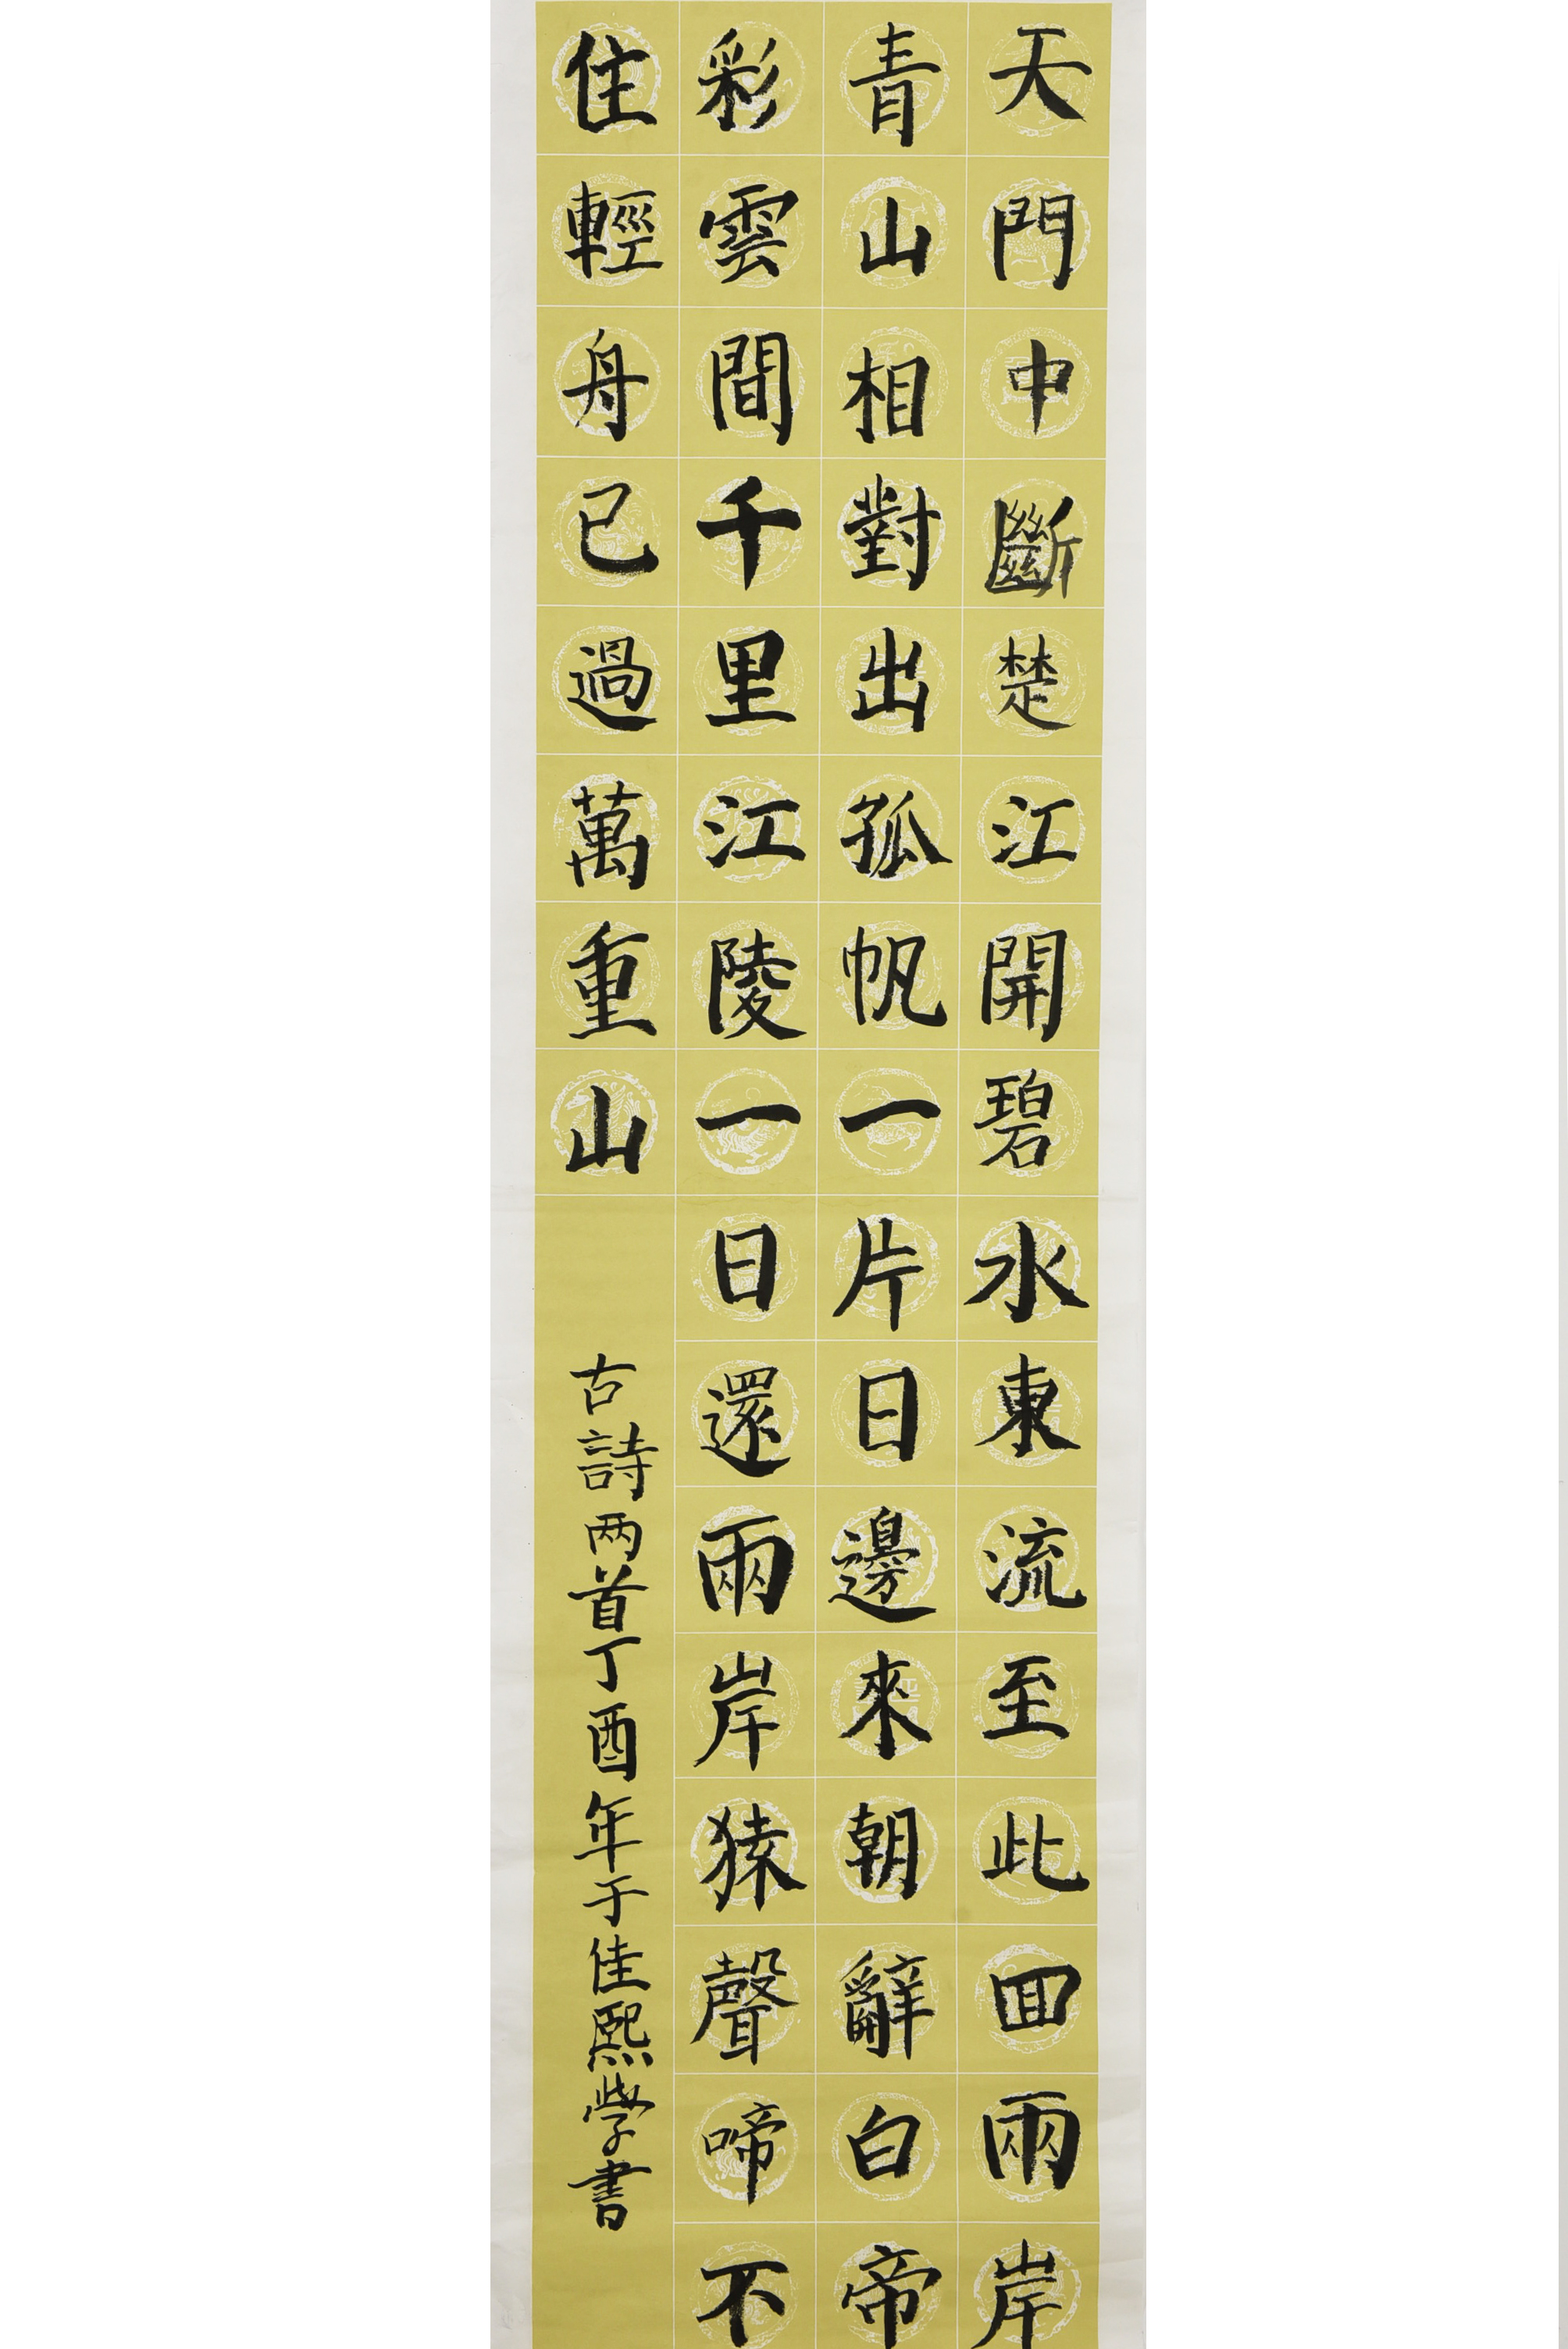 天門中斷楚江開碧水東流至此回兩岸
青山相對出孤帆一片日邊來朝辭白帝
彩雲間千里江陵一日還兩岸猿聲啼不
住輕舟已過萬重山
古詩两首丁酉年于佳熙學書